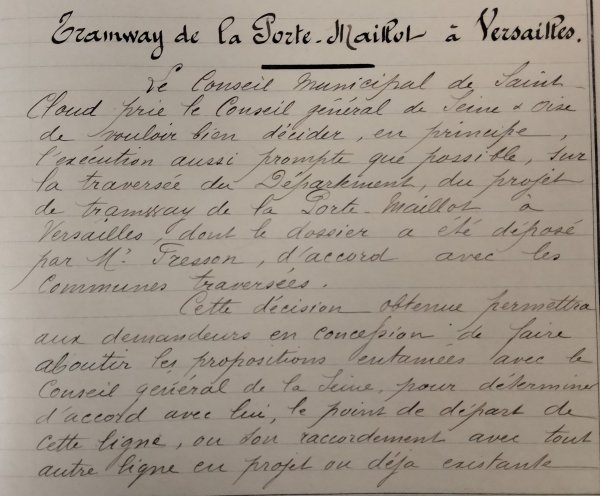 Tramway de la Porte-Maillot à Versailles.
Le Conseil Municipal de Saint-
Cloud prie le Conseil général de Seine & Oise
de vouloir bien décider, en principe,
l'exécution aussi prompte que possible, sur
la traversée du Département, du projet
de tramway de la Porte-Maillot à
Versailles, dont le dossier a été déposé
par Mr. Fresson, d'accord avec les
Communes traversées.
Cette décision obtenue permettra
aux demandeurs en concession de faire
aboutir les propositions entamées avec le
Conseil général de la Seine, pour déterminer
d'accord avec lui, le point de départ de
cette ligne, ou son raccordement avec tout
autre ligne en projet ou déja existante